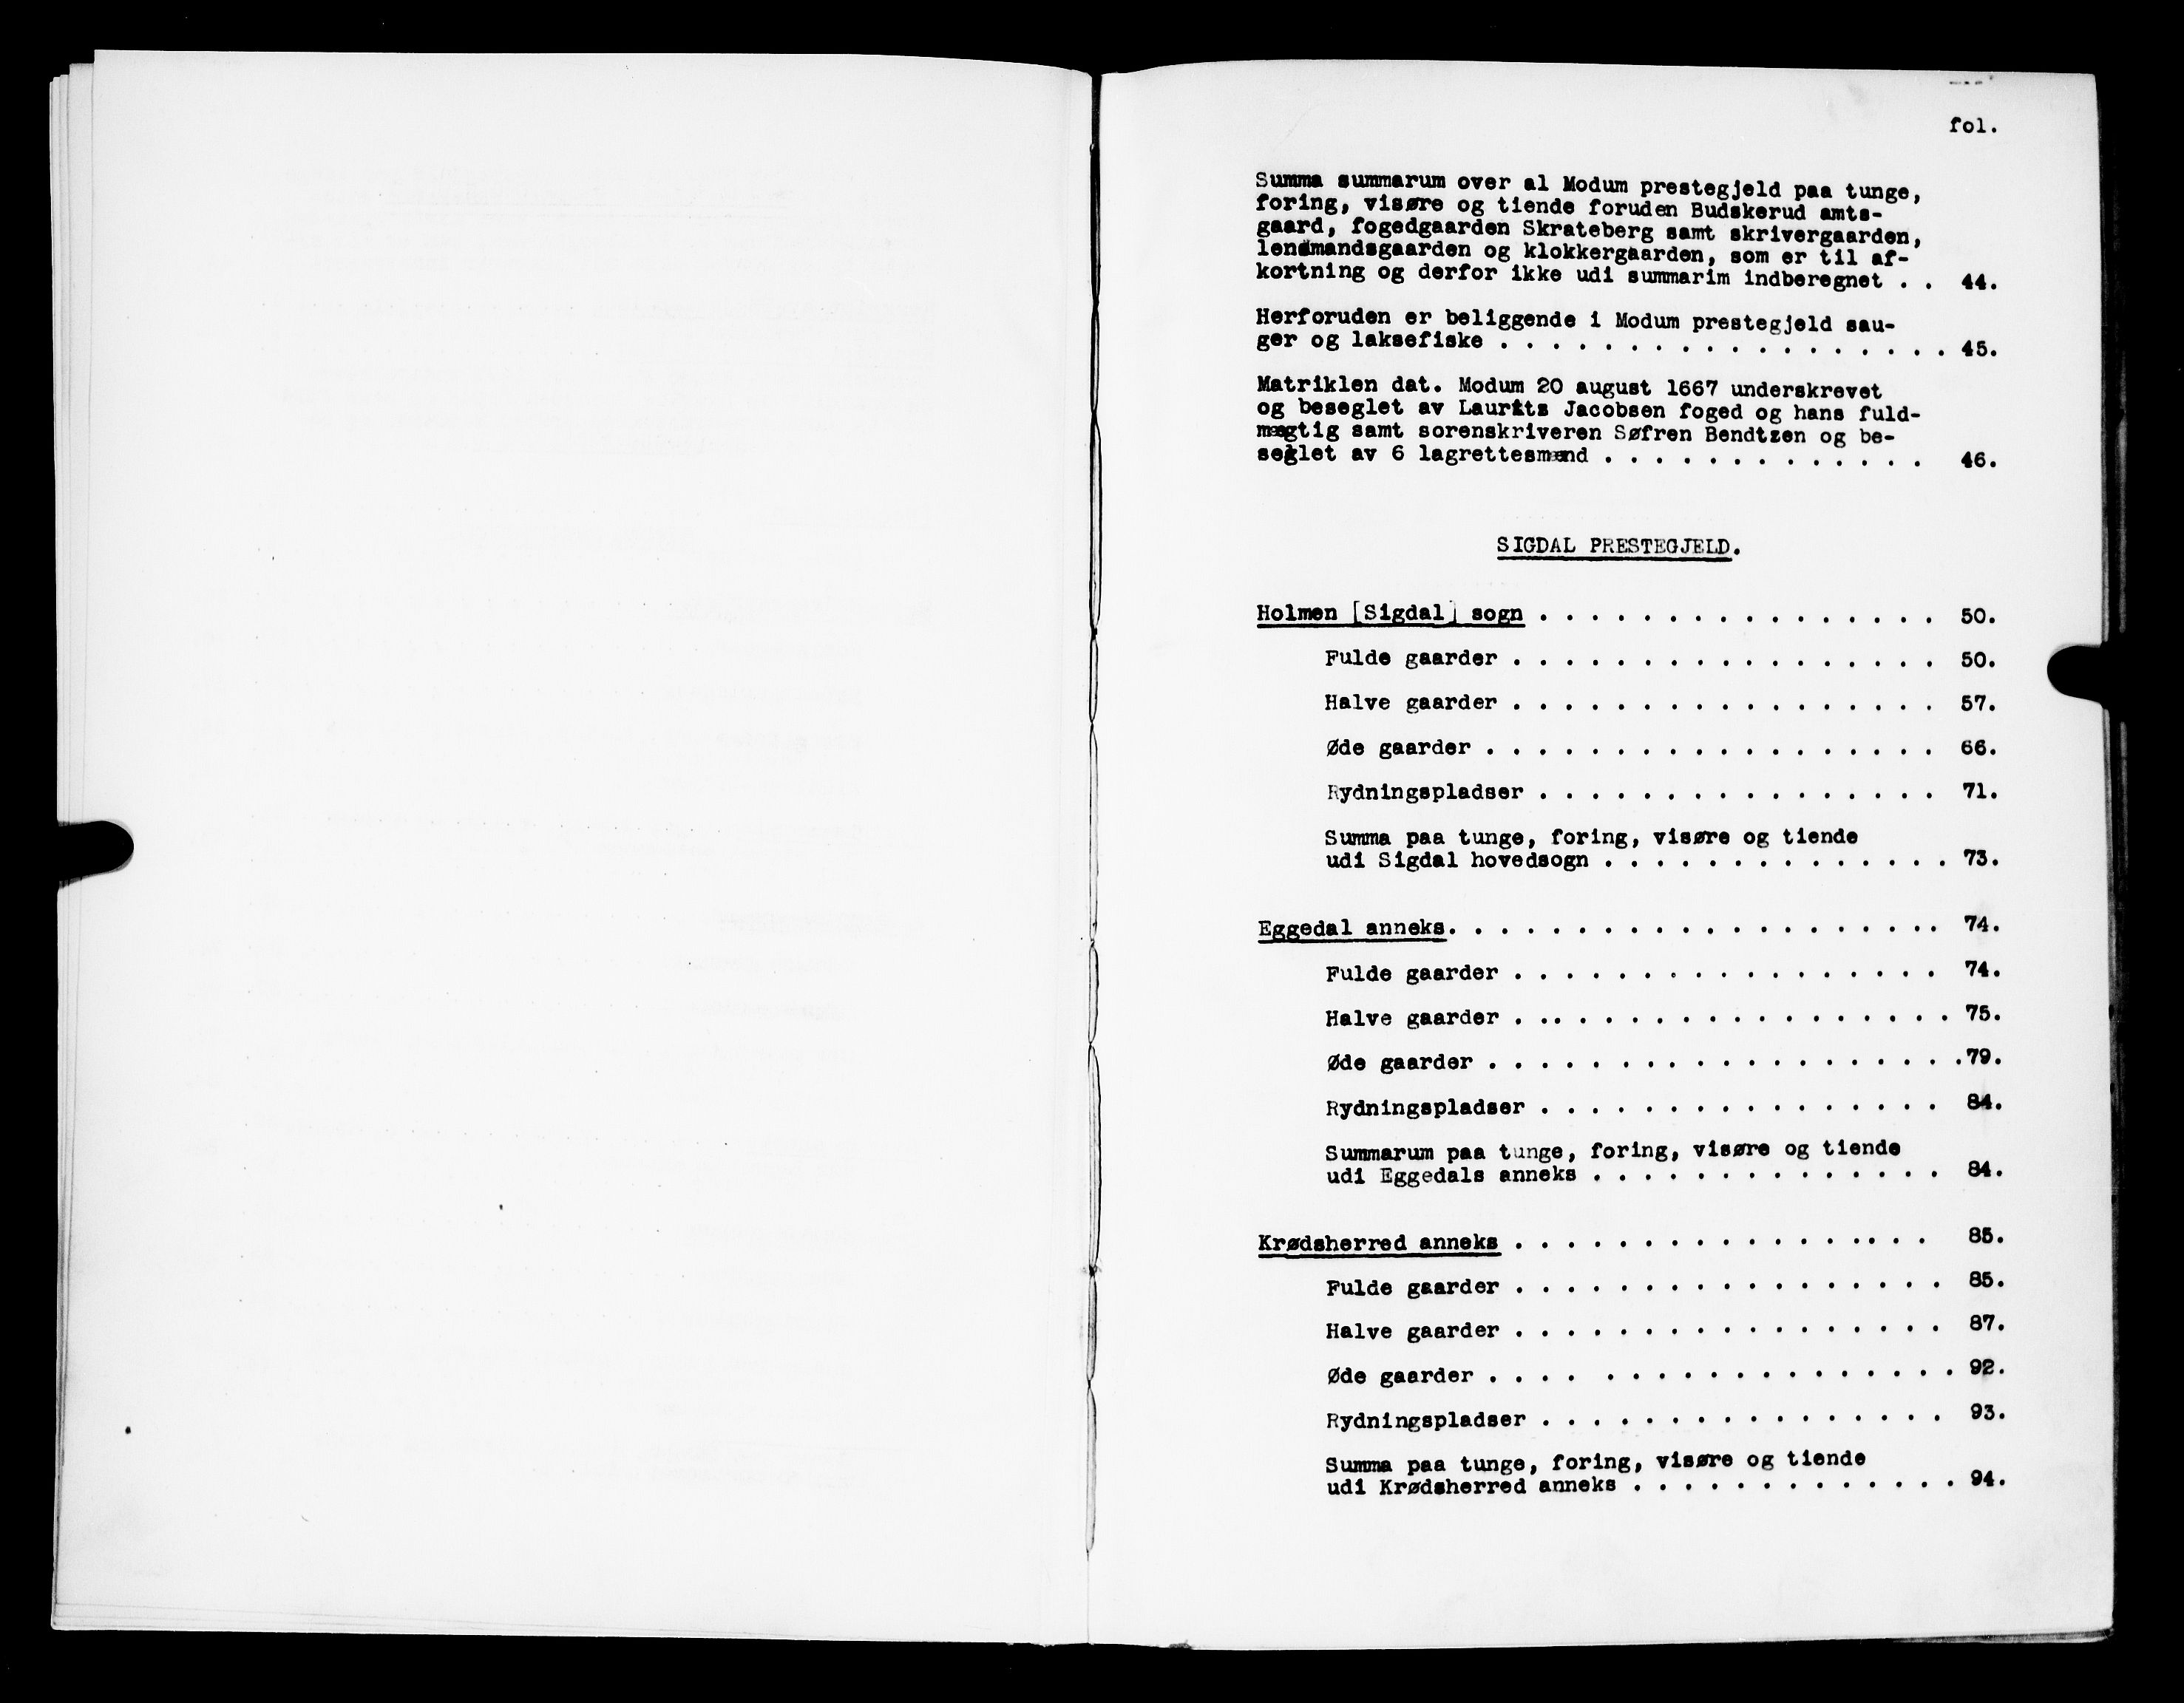 fol.
Summa summarum over al Modum prestegjeld paa tunge,
foring, visøre og tiende foruden Budskerud amts-
gaard, fogedgaarden Skrateberg samt skrivergaarden,
lendmandsgaarden og klokkergaarden, som er til af-
kortning og derfor ikke udi summarim indberegnet . . 44.
Herforuden er beliggende i Modum prestegjeld sau-
ger og laksefiske . . . . . . . . . . . . . . . . . . 45.
Matriklen dat. Modum 20 august 1667 underskrevet
og beseglet av Laurits Jacobsen foged og hans fuld-
mægtig samt sorenskriveren Søfren Bendtzen og be-
seglet av 6 lagrettesmænd . . . . . . . . . . . . . 46.
SIGDAL PRESTEGJELD.
Holmen [Sigdal] sogn . . . . . . . . . . . . . . . . 50.
Fulde gaarder . . . . . . . . . . . . . . . . . 50.
Halve gaarder . . . . . . . . . . . . . . . . . 57.
Øde gaarder . . . . . . . . . . . . . . . . . . 66.
Rydningspladser . . . . . . . . . . . . . . . . 71.
Summa paa tunge, foring, visøre og tiende
udi Sigdal hovedsogn . . . . . . . . . . . . . . 73.
Eggedal anneks. . . . . . . . . . . . . . . . . . . 74.
Fulde gaarder . . . . . . . . . . . . . . . . . 74.
Halve gaarder . .. . . . . . . . . . . . . . . . 75.
Øde gaarder . . . . . . . . . . . . . . . . . . .79.
Rydningspladser . . . . . . . . . . . . . . . . 84.
Summarum paa tunge, foring, visøre og tiende
udi Eggedals anneks . . . . . . . . . . . . . . 84.
Krødsherred anneks . . . . . . . . . . . . . . . . 85.
Fulde gaarder . . . . . . . . . . . . . . . . . 85.
Halve gaarder . . . . . . . . . . . . . . . . . 87.
Øde gaarder . . . . . . . . . . . . . . . . . . 92.
Rydningspladser . . . . . . . . . . . . . . . . 93.
Summa paa tunge, foring, visøre og tiende
udi Krødsherred anneks . . . . . . . . . . . . . 94.